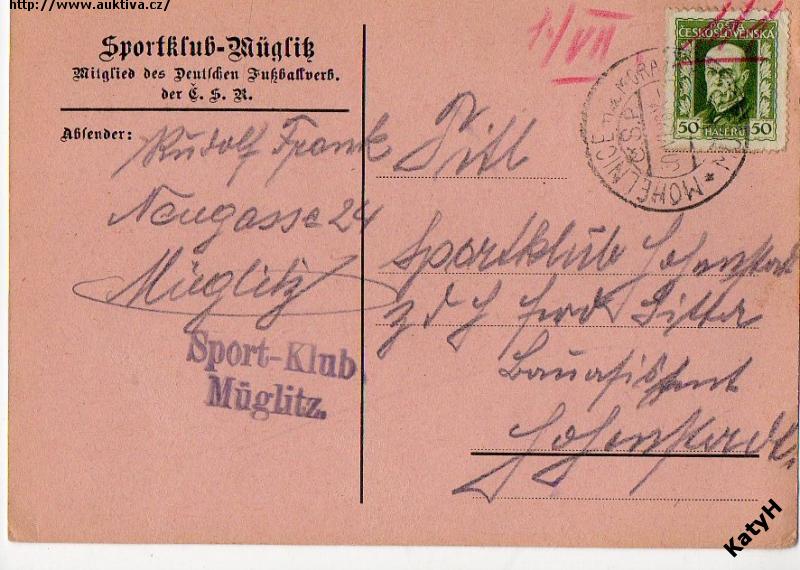 http://www.auktiva.cz/
Sportklub-Müglitz
Mitglied des Deutschen Fußballverb.
der Č. S. R.
Absender:
Rudolf Frank
Neugasse 24
Müglitz
Sport-Klub
Müglitz.
1./VII
POŠTA
ČESKOSLOVENSKÁ
50 HALÉŘŮ 50
MOHELNICE NA MORAVĚ
ČSP
Titl
Sportklub Hohenstadt
z d H ferd Ditter
Bauassistent
Hohenstadt.
KatyH